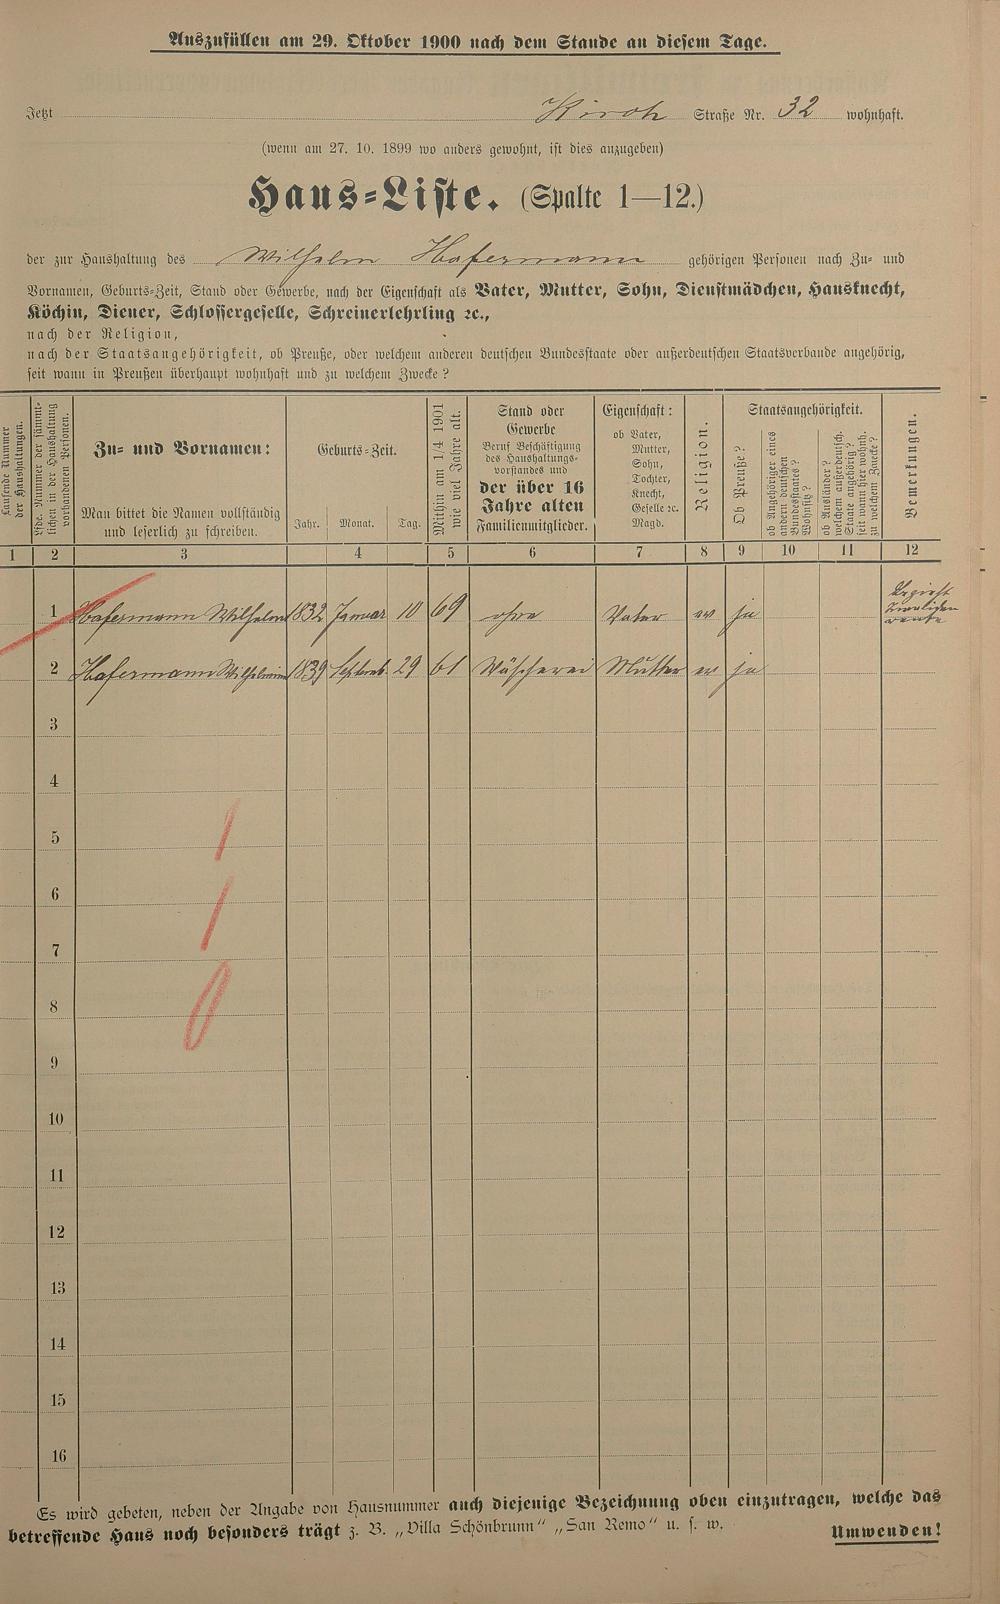 Auszufüllen am 29. Oktober 1900 nach dem Stande an diesem Tage.
Jetzt Kirch Straße Nr. 32 wohnhaft.
(wenn am 27. 10. 1899 wo anders gewohnt, ist dies anzugeben)
Haus-Liste. (Spalte 1—12.)
der zur Haushaltung des Wilhelm Hafermann gehörigen Personen nach Zu- und
Vornamen, Geburts-Zeit, Stand oder Gewerbe, nach der Eigenschaft als Vater, Mutter, Sohn, Dienstmädchen, Hausknecht,
Köchin, Diener, Schlossergeselle, Schreinerlehrling ꝛc.,
nach der Religion,
nach der Staatsangehörigkeit, ob Preuße, oder welchem anderen deutschen Bundesstaate oder außerdeutschen Staatsverbande angehörig,
seit wann in Preußen überhaupt wohnhaft und zu welchem Zwecke?
Laufende Nummer
der Haushaltungen.
Lfde. Nummer der sämmt-
lichen in der Haushaltung
vorhandenen Personen.
Zu- und Vornamen:
Man bittet die Namen vollständig
und leserlich zu schreiben.
Geburts-Zeit.
Jahr. Monat. Tag.
Mithin am 1/4 1901
wie viel Jahre alt.
Stand oder
Gewerbe
Beruf Beschäftigung
des Haushaltungs-
vorstandes und
der über 16
Jahre alten
Familienmitglieder.
Eigenschaft:
ob Vater,
Mutter,
Sohn,
Tochter,
Knecht,
Geselle ꝛc.
Magd.
Religion.
Staatsangehörigkeit.
Ob Preuße?
ob Angehöriger eines
andern deutschen
Bundesstaates?
Wohnsitz?
ob Ausländer?
welchem außerdeutsch.
Staate angehörig?
seit wann hier wohnh.
zu welchem Zwecke?
Bemerkungen.
1 2 3 4 5 6 7 8 9 10 11 12
1 Hafermann Wilhelm 1832 Januar 10 69 ohne Vater ev ja Bezieht Invaliden rente
2 Hafermann Wilhelmine 1839 Septemb. 29 61 Wäscherei Mutter ev ja
3
4
5
6
7
8
9
10
11
12
13
14
15
16
1
1
0
Es wird gebeten, neben der Angabe von Hausnummer auch diejenige Bezeichnung oben einzutragen, welche das
betreffende Haus noch besonders trägt z. B. „Villa Schönbrunn“ „San Remo“ u. s. w. Umwenden!